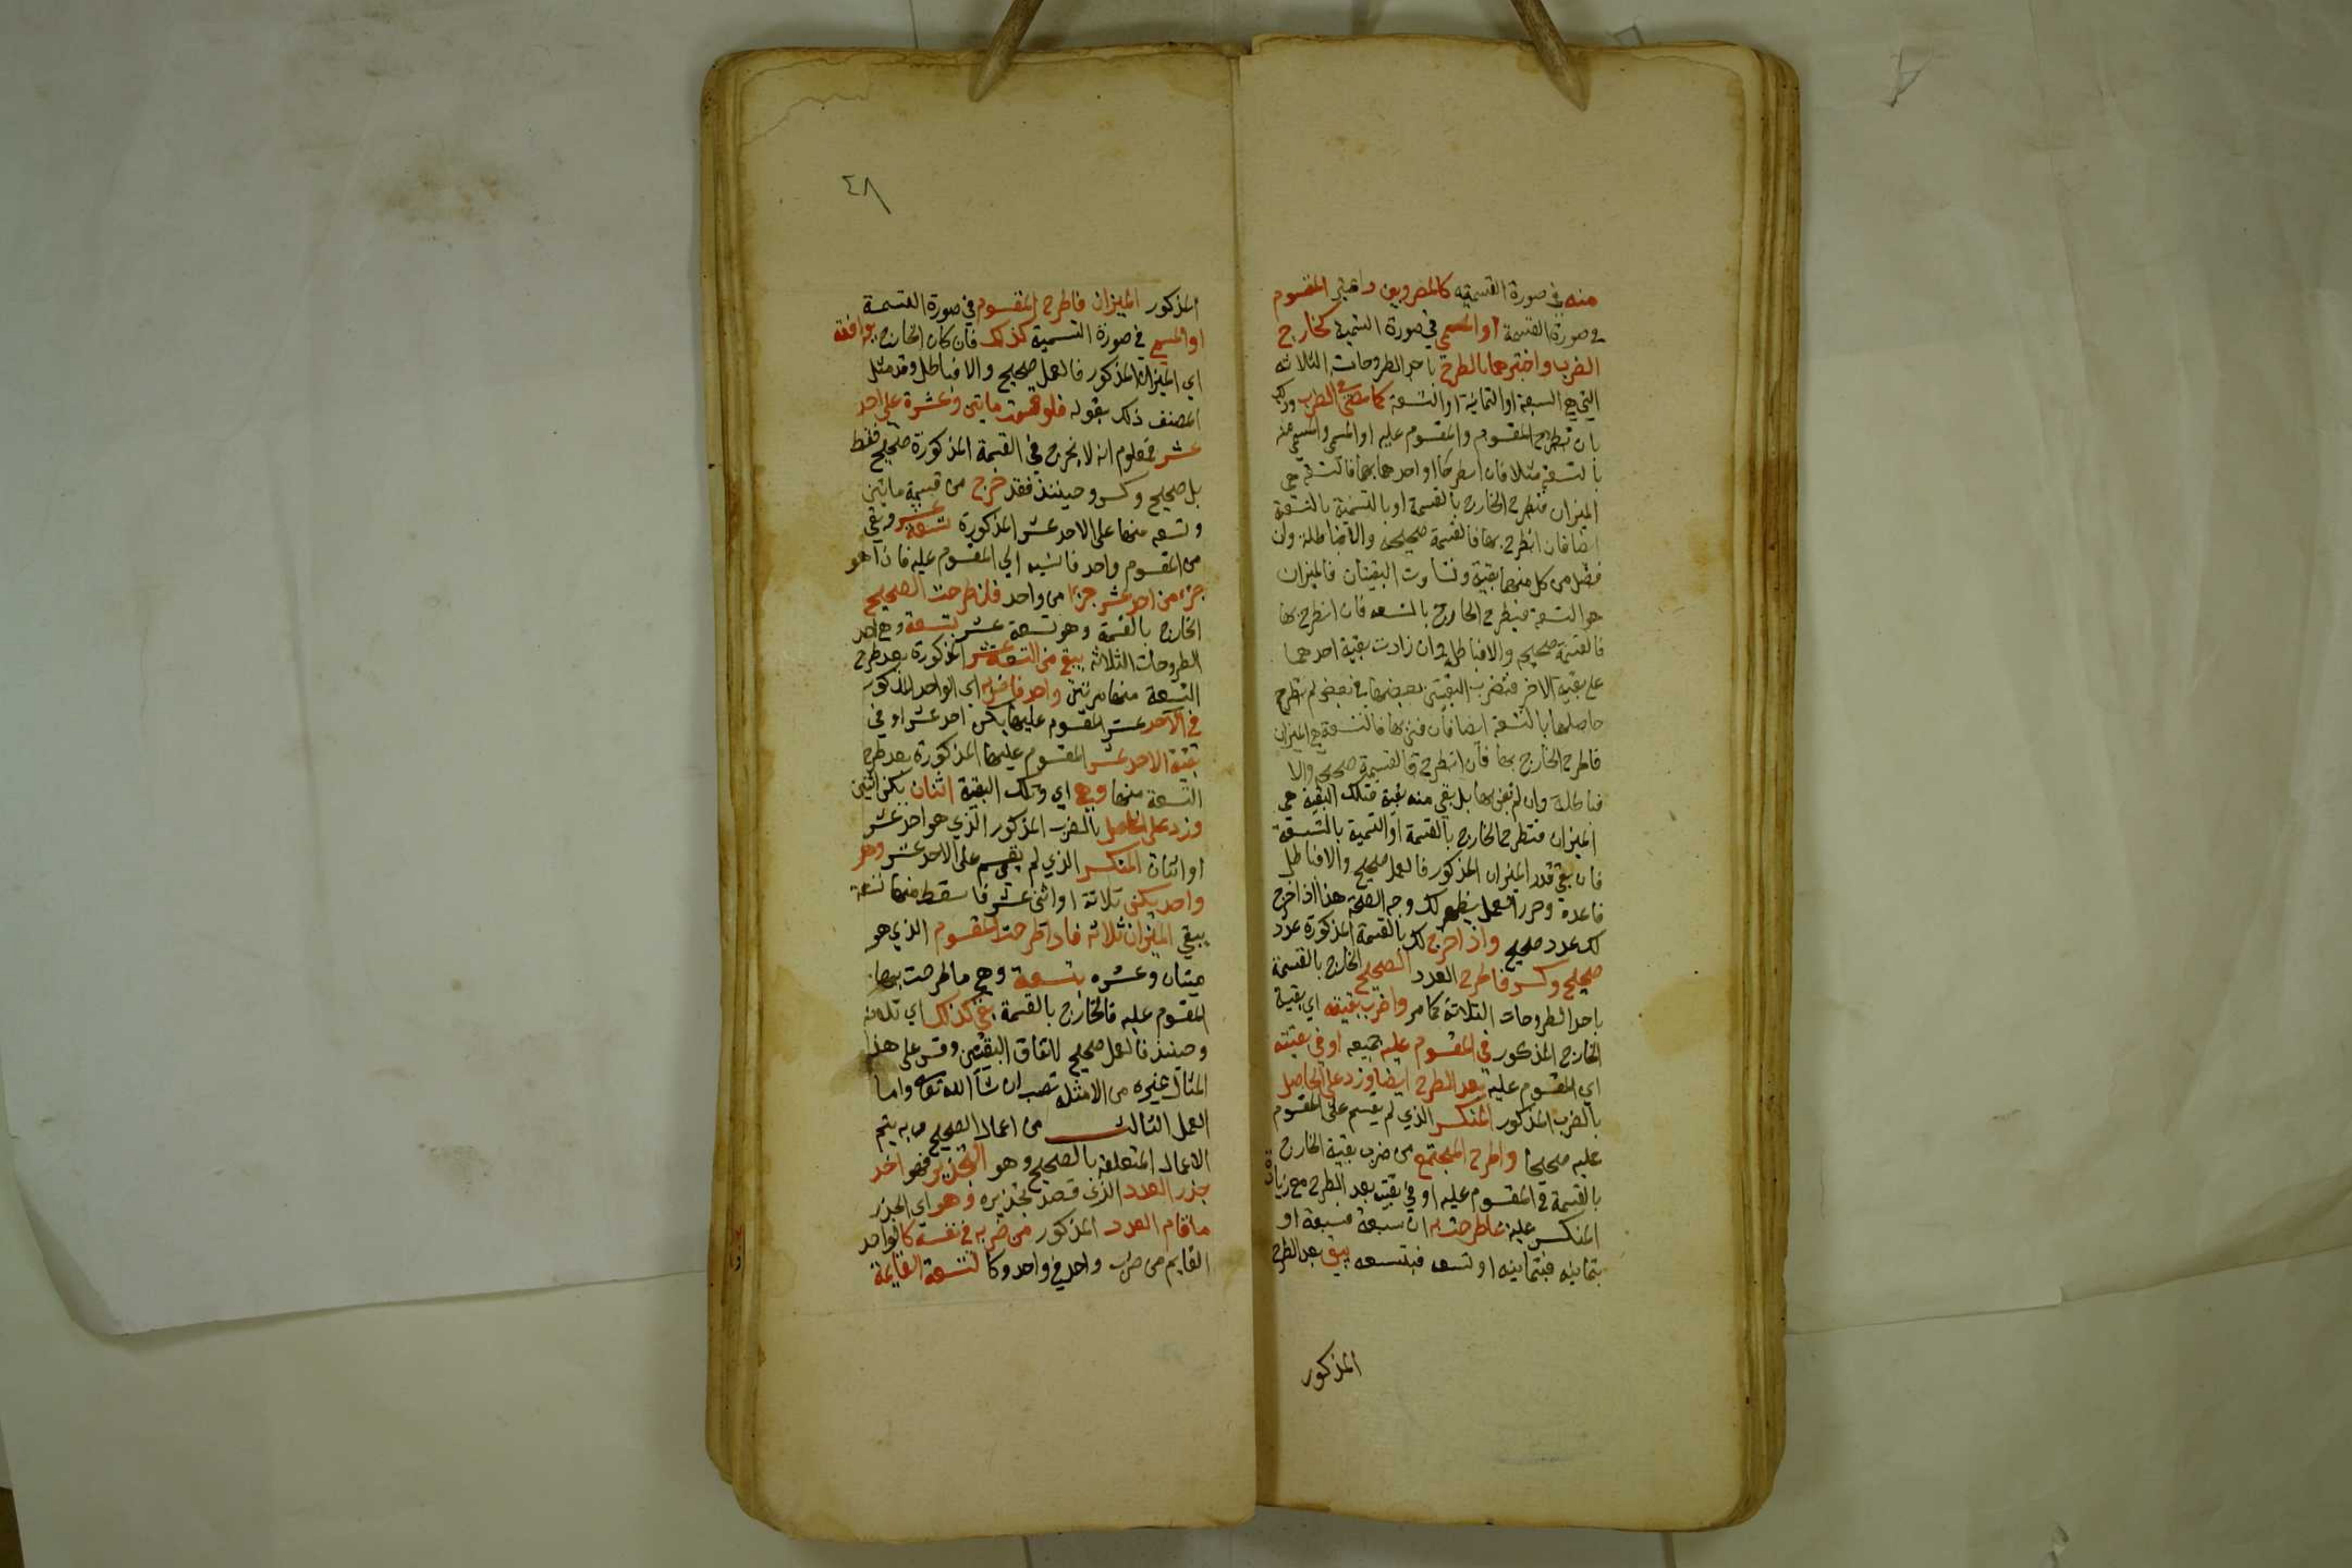 منه في صورة القسمية كالمضروبين واعتبر المقسوم
في صورة القسمة او المسمى في صورة التسمية كخارج
الضرب واختبرهما بالطرح باحد الطروحات الثلاثه
التي هي السبعة او الثمانية او التسعة كما مضى في الضرب وذلك
بان تطرح المقسوم والمقسوم عليه او المسمى والمسمى منه
بالتسعة مثلا فان انطرحا او احدهما بها فالتسعة هي
الميزان فتطرح الخارج بالقسمة او بالتسمية بالتسعة
ايضا فان انطرح بها فالقسمة صحيحه والا فباطلة وان
فضل من كل منهما بقية وتساوت البقيتان فالميزان
هو التسعة فيطرح الخارج بالتسعه فان انطرح بها
فالقسمة صحيحه والا فباطل وان زادت بقية احدهما
على بقية الاخر فتضرب البقيتين بعضهما في بعض ثم تطرح
حاصلهما بالتسعة ايضا فان فنى بها فالتسعة هي الميزان
فاطرح الخارج بها فان انطرح فالقسمة صحيحه والا
فباطلة وان لم يفن بها بل بقي منه بقية فتلك البقية هي
الميزان فتطرح الخارج بالقسمة او التسمية بالتسعة
فان بقي قدر الميزان المذكور فالعمل صحيح والا فباطل
فاعده وحرر العمل يظهر لك وجه الصحة هذا اذا خرج
لك عدد صحيح واذا خرج لك بالقسمة المذكورة عدد
صحيح وكسر فاطرح العدد الصحيح الخارج بالقسمة
باحد الطروحات الثلاثة كما مر واضرب بقيته اي بقية
الخارج المذكور في المقسوم عليه جميعه او في بقيته
اي المقسوم عليه بعد الطرح ايضا وزد على الحاصل
بالضرب المذكور المنكسر الذي لم يقسم على المقسوم
عليه صحيحا واطرح المجتمع من ضرب بقية الخارج
بالقسمة في المقسوم عليه او في بقيته بعد الطرح مع زيادة
المنكسر عليه بما طرحت به ان سبعة فسبعة او
بثمانيه فبثمانيه او تسعه فبتسعه يبقى بعد الطرح
المذكور
٤٨
المذكور الميزان فاطرح المقسوم في صورة القسمة
او المسمى في صورة التسمية كذلك فان كان الخارج يوافقه
اي الميزان المذكور فالعمل صحيح والا فباطل وقد مثل
المصنف ذلك بقوله فلو قسمت مايتين وعشرة على احد
عشر فمعلوم انه لا يخرج في القسمة المذكورة صحيح فقط
بل صحيح وكسر وحينئذ فقد خرج من قسمة مايتين
وتسعه منها على الاحد عشر المذكورة تسعة عشر وبقي
من المقسوم واحد فانسبه الي المقسوم عليه فاذا هو
جزء من احد عشر جزءا من واحد فان طرحت الصحيح
الخارج بالقسمة وهو تسعة عشر بتسعة وهي احد
الطروحات الثلاثه يبقى من التسعة عشر المذكورة بعد طرح
التسعة منها مرتين واحد فاضربه اي الواحد المذكور
في الاحد عشر المقسوم عليها يكن احد عشر او في
بقية الاحد عشر المقسوم عليها المذكورة بعد طرح
التسعة منها وهي اي وتلك البقية اثنان يكن اثنين
وزد على الحاصل بالضرب المذكور الذي هو احد عشر
او اثنان المنكسر الذي لم يقسم على الاحد عشر وهو
واحد يكن ثلاثة او اثنى عشر فاسقط منها تسعة
يبقى الميزان ثلاثه فاذا طرحت المقسوم الذي هو
ميتان وعشره بتسعة وهي ما طرحت بها
المقسوم عليه فالخارج بالقسمة بقي كذلك اي ثلاثه
وحينئذ فالعمل صحيح لاتفاق البقيتين وقس على هذا
المثال غيره من الامثله تصب ان شا الله تعالى واما
العمل الثالث من اعمال الصحيح وبه يتم
الاعمال المتعلقه بالصحيح وهو التجذير فهو اخذ
جذر العدد الذي قصد تجذيره وهو اي الجذر
ما قام العدد المذكور من ضربه في نفسه كالواحد
القايم من ضرب واحد في واحد وكالتسعة القايمة